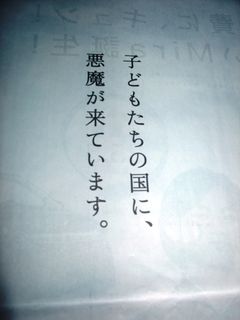 子どもたちの国に、
悪魔が来ています。